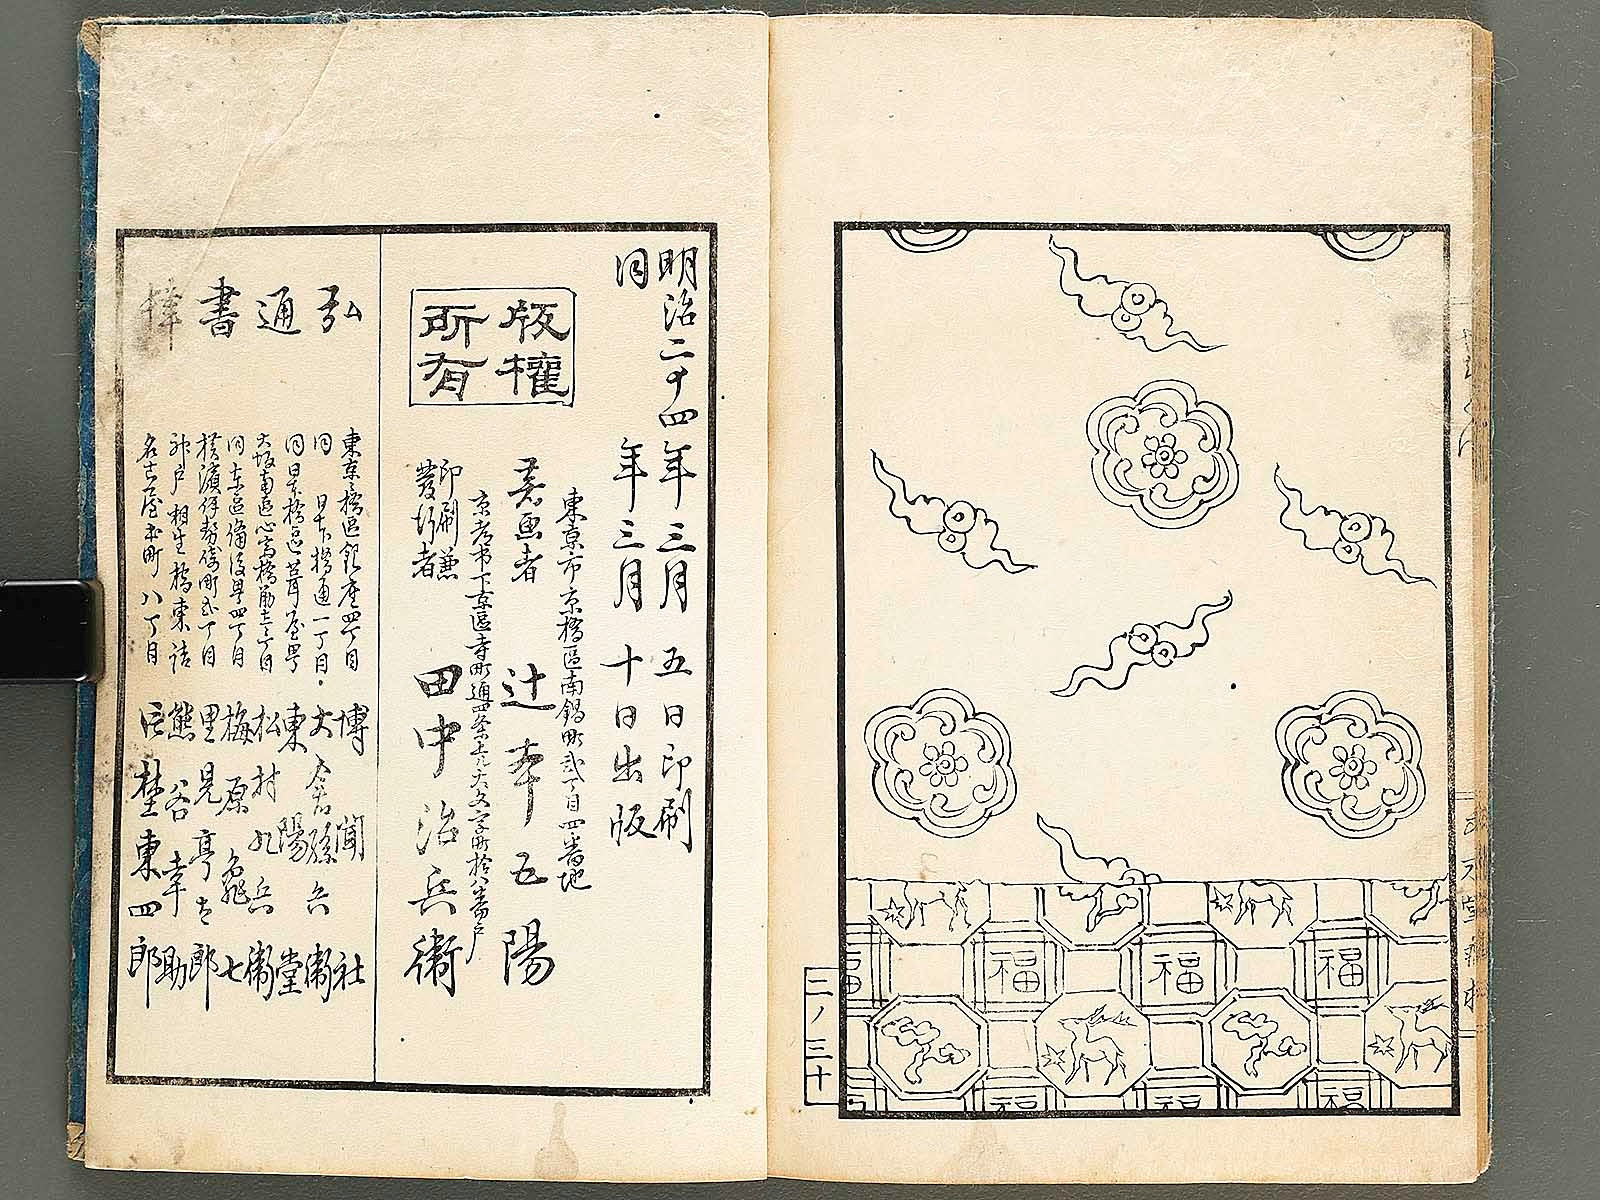 福
福
福
福
福
福
二ノ三十
明治二十四年三月五日印刷
同年三月十日出版
版權
所有
東京市京橋區南鍋町弐丁目四番地
著画者
辻幸五陽
京都市下京區寺町通四条上ル大文字町拾八番戸
印刷兼
發行者
田中治兵衞
弘通書
東京々橋區銀座四丁目 博聞社
同 日本橋通一丁目 大倉孫兵衞
同日本橋區葺屋町 東陽堂
大坂南區心斎橋筋 松村九兵衞
同東區備後町四丁目 梅原亀七
横濱伊勢崎町弐丁目 里見亭太郎
神戸相生橋東詰 熊谷幸助
名古屋本町八丁目 片埜東四郎